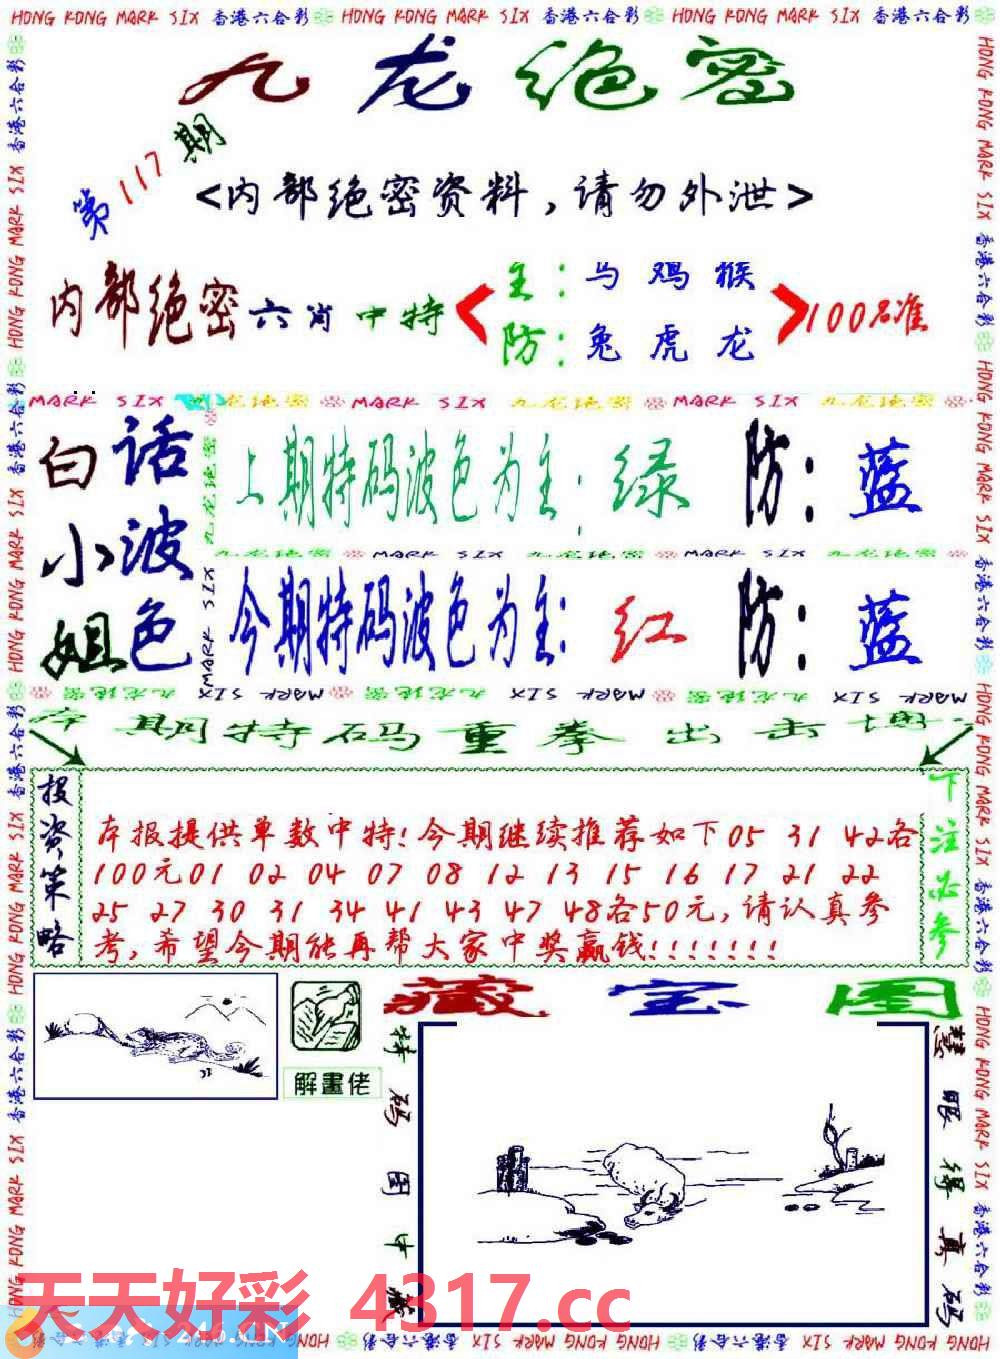 HONG KONG MARK SIX 香港六合彩 HONG KONG MARK SIX 香港六合彩 HONG KONG MARK SIX 香港六合彩
九龙绝密
第117期
<内部绝密资料,请勿外泄>
内部绝密六肖中特
主:马鸡猴
防:兔虎龙
100%准
MARK SIX 九龙绝密 MARK SIX 九龙绝密 MARK SIX 九龙绝密
白小姐
话波色
上期特码波色为主:绿 防:蓝
九龙绝密 MARK SIX 九龙绝密 MARK SIX 九龙绝密
今期特码波色为主:红 防:蓝
MARK SIX 九龙绝密 MARK SIX 九龙绝密 MARK SIX 九龙绝密 MARK SIX
本期特码重拳出击
投资策略
本报提供单数中特!今期继续推荐如下05 31 42各
100元01 02 04 07 08 12 13 15 16 17 21 22
25 27 30 31 34 41 43 47 48各50元,请认真参
考,希望今期能再帮大家中奖赢钱!!!!!!!
下注必参
藏宝图
解畫佬
特码图中藏
慧眼得真码
天天好彩 4317.cc
HONG KONG MARK SIX 香港六合彩 HONG KONG MARK SIX 香港六合彩